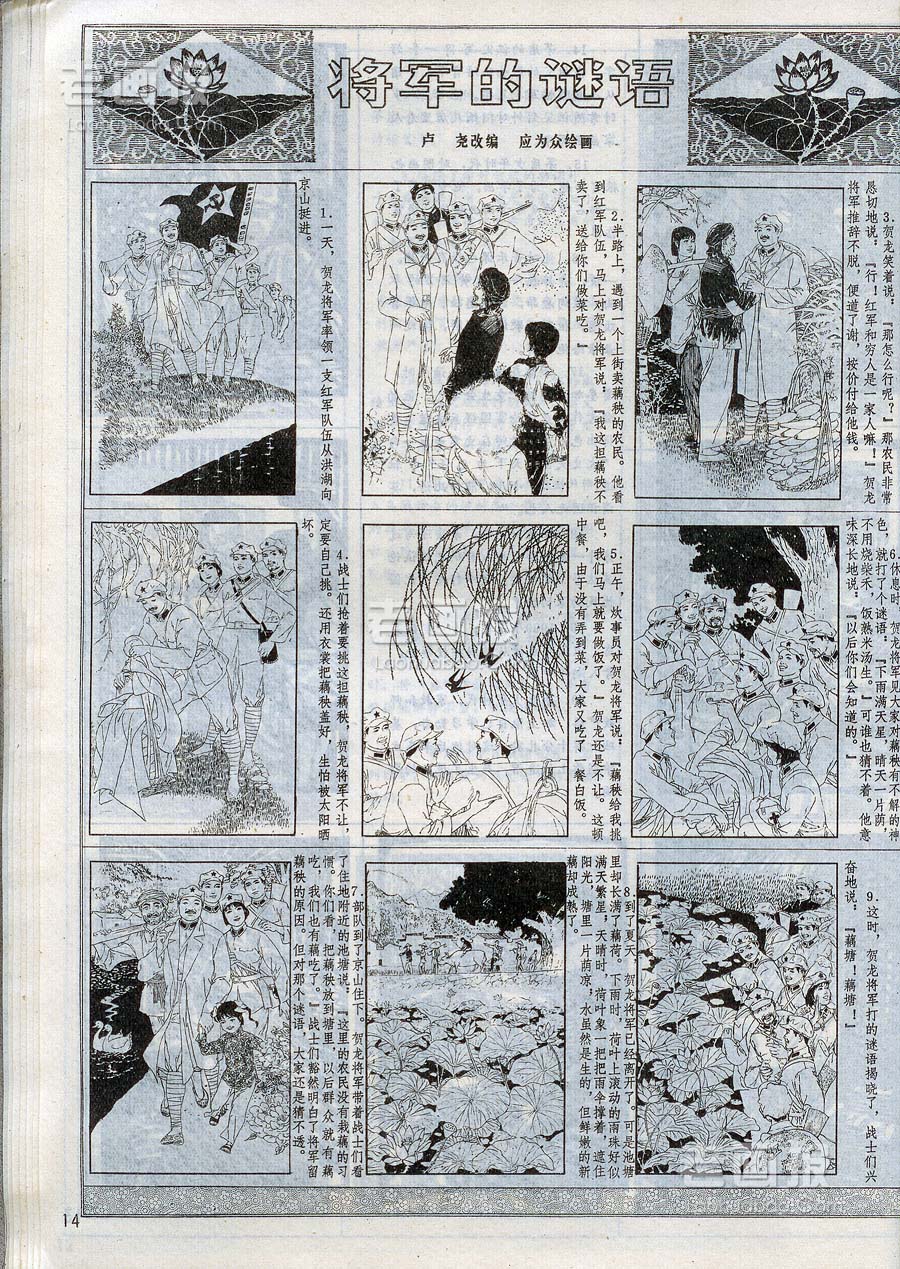 将军的谜语
卢 尧改编 应为众绘画
1.一天，贺龙将军率领一支红军队伍从洪湖向
京山挺进。
2.半路上，遇到一个上街卖藕秧的农民。他看
到红军队伍，马上对贺龙将军说：『我这担藕秧不
卖了，送给你们做菜吃。』
3.贺龙笑着说：『那怎么行呢？』那农民非常
恳切地说：『行！红军和穷人是一家人嘛！』贺龙
将军推辞不脱，便道了谢，按价付给他钱。
4.战士们抢着要挑这担藕秧，贺龙将军不让，
定要自己挑。还用衣裳把藕秧盖好，生怕被太阳晒
坏。
5.正午，炊事员对贺龙将军说：『藕秧给我挑
吧，我们马上就要做饭了。』贺龙还是不让。这顿
中餐，由于没有弄到菜，大家又吃了一餐白饭。
6.休息时，贺龙将军见大家对藕秧有不解的神
色，就打了个谜语：『下雨满天星，晴天一片荫，
不用烧柴禾，饭熟米汤生。』可谁也猜不着。他意
味深长地说：『以后你们会知道的。』
7.部队到了京山住下。贺龙将军带着战士们看
了住地附近的池塘说：『这里的农民没有栽藕的习
惯。你们看，把藕秧放到塘里，以后群众就有藕
吃，我们也有藕吃了。』战士们豁然明白了将军留
藕秧的原因。但对那个谜语，大家还是猜不透。
8.到了夏天，贺龙将军已经离开了。可是池塘
里却长满了藕荷。下雨时，荷叶上滚动的雨珠好似
满天繁星；天晴时，荷叶象一把把雨伞撑着，遮住
阳光，塘里一片荫凉，水虽然是生的，但鲜嫩的新
藕却成熟了。
9.这时，贺龙将军打的谜语揭晓了，战士们兴
奋地说：『藕塘！藕塘！』
14
老画报
老画报
老画报